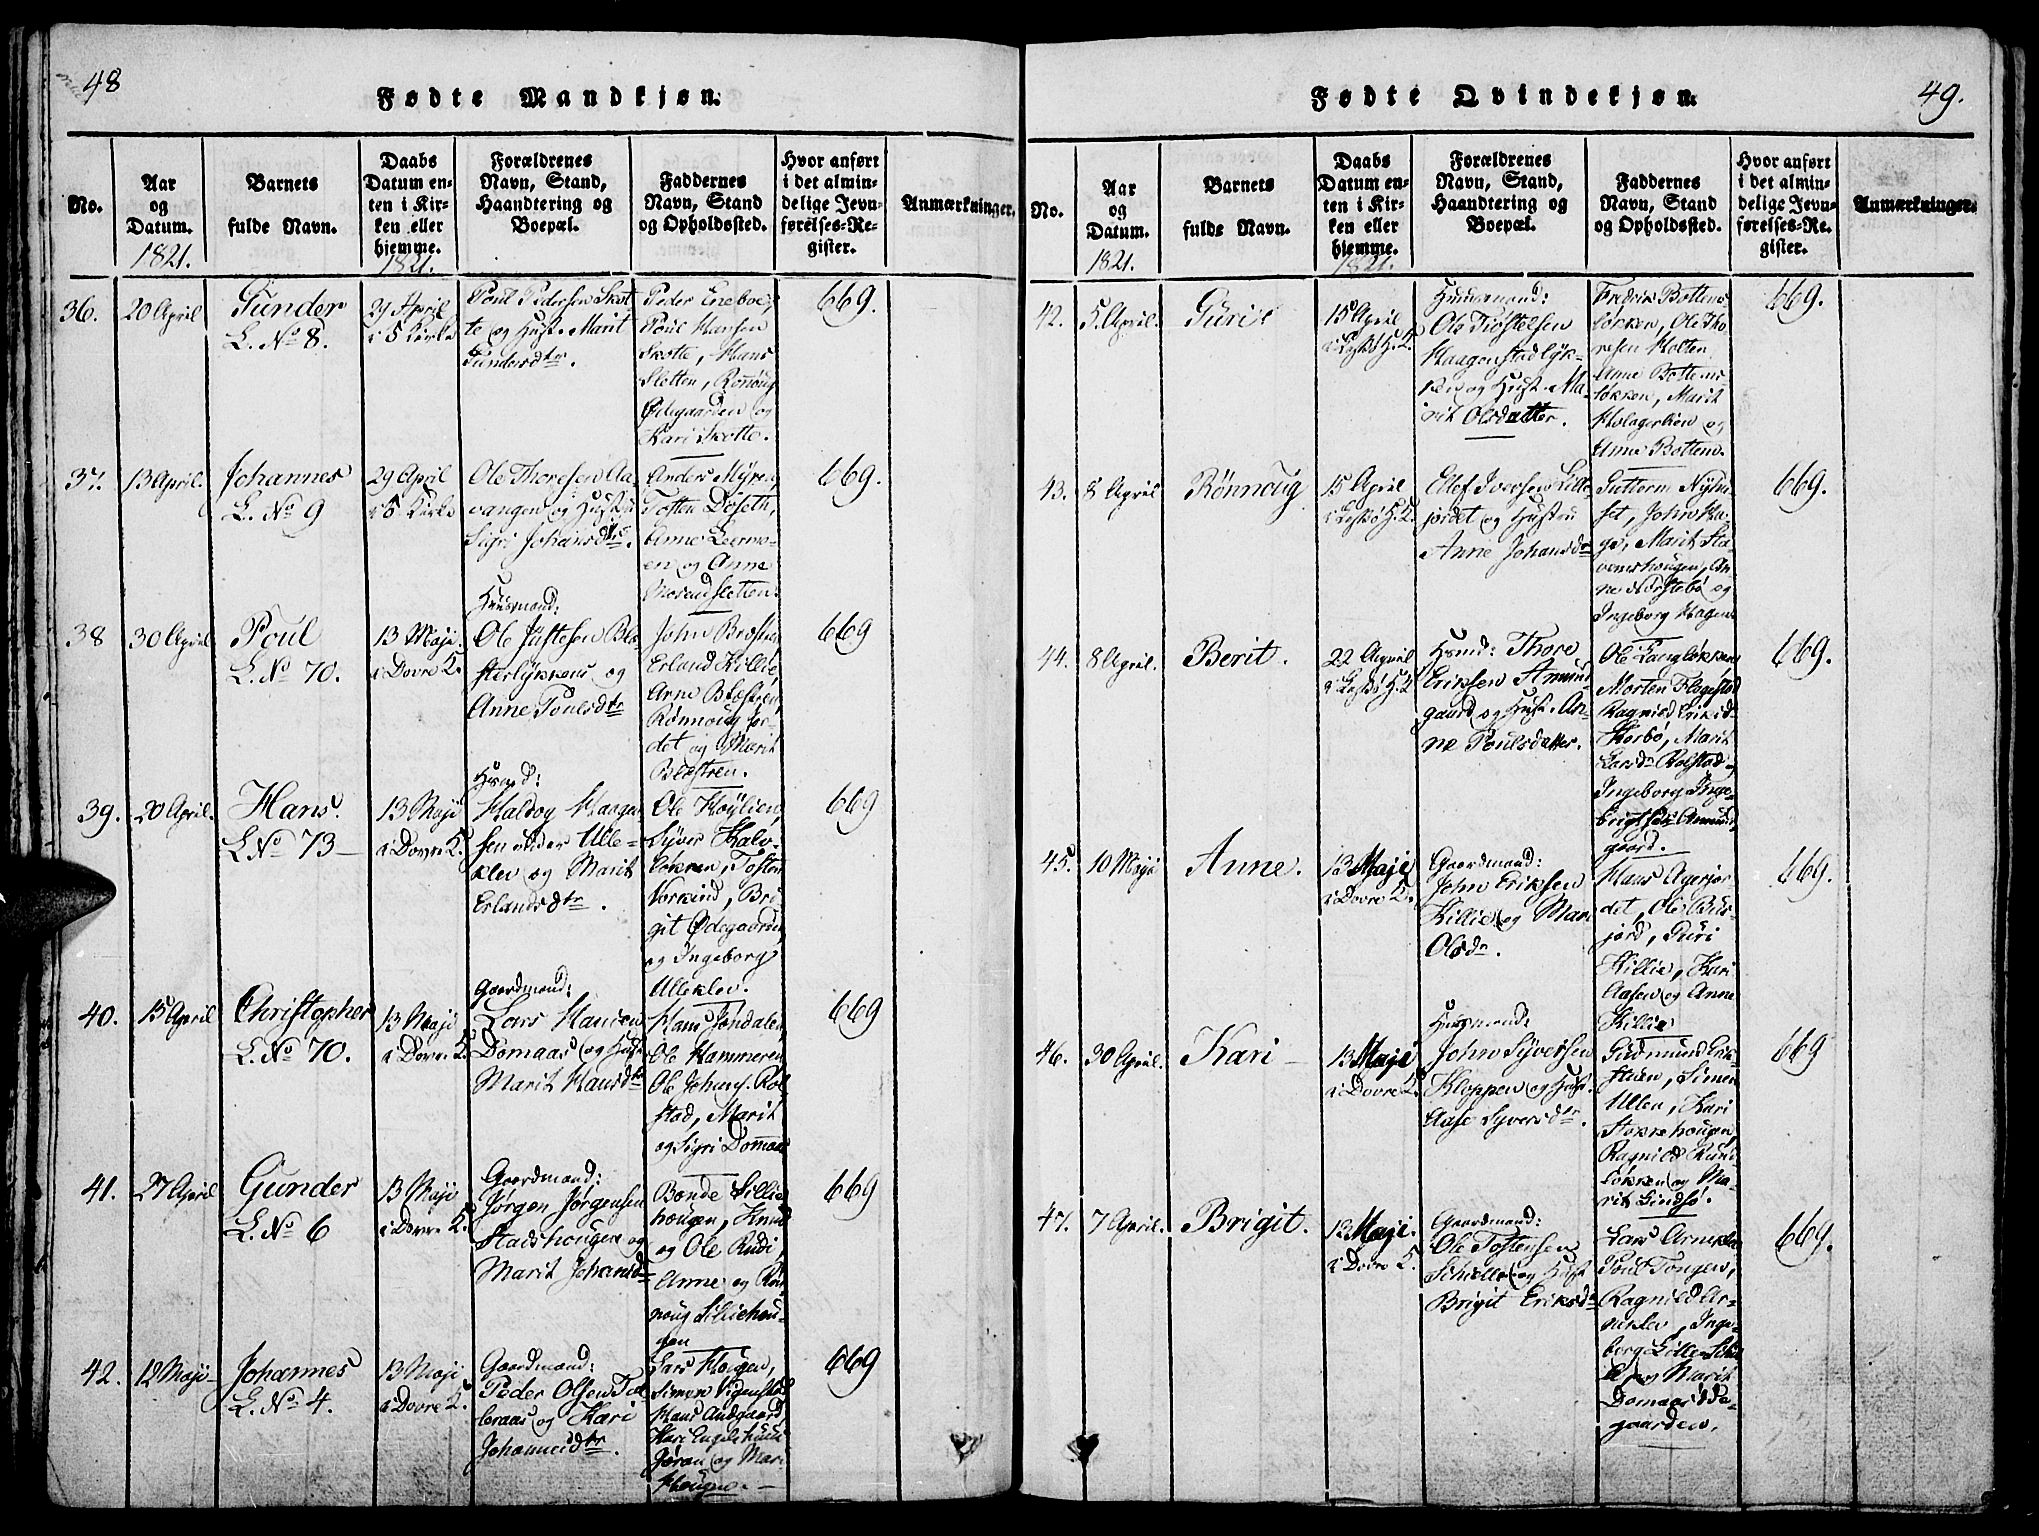 48
Fødte Mandkjøn.
No.
Aar
og
Datum.
1821.
Barnets
fulde Navn.
Daabs
Datum en-
ten i Kir-
ken eller
hjemme.
1821.
Forældrenes
Navn, Stand,
Haandtering og
Boepæl.
Faddernes
Navn, Stand
og Opholdssted.
Hvor anført
i det almin-
delige Jevn-
førelses-Re-
gister.
Anmærkninger.
36.
20 April
Gunder
L. No 8.
29 April
i S Kirke
Poul Pedersen Skot
te og Hust. Marit
Gundersdtr.
Peder Eneboe,
Poul Hansen
Skotte, Hans
Sletten, Rønnoug
Ødegaarden og
Kari Skotte.
669.
37.
13 April.
Johannes
L. No 9
29 April
i S Kirke
Ole Thoresen Aa-
vangen og Hustru
Sigri Johansdtr.
Anders Myren,
Tosten Doseth,
Anne Leermo-
en og Anne
Moraudsletten.
669.
38
30 April
Poul
L. No 70.
13 Maji
i Dovre K.
Huusmand:
Ole Justesen Blæ-
sterløkkens og
Anne Poulsdtr
John
Erland Killie,
Arne Blæstren,
Rønnoug Jor-
det og Marit
Blæstren.
669
39.
20 April.
Hans
L No 73
13 Maji
i Dovre K.
Hsmd:
Haldog Haagen
sen under Ulle-
klev og Marit
Erlandsdtr.
Ole
Syver Kalv-
løkken, Tosten
Vorkind, Bri
git Ødegaarden
og Ingeborg
Ulleklev.
669
40.
15 April
Christopher
L. No 70.
13 Maji
i Dovre K.
Gaardmand:
Lars Hansen
Domaas og Hust
Marit Hansdtr
Hans Jøndalen,
Ole Hammeren,
Ole Johans. Rol
stad, Marit
og Sigri Domaas
669
41.
27 April
Gunder
L. No 6
13 Maji
i Dovre K.
Gaardmand:
Jørgen Jørgensen
Stadshougen og
Marit Johansdtr
Bonde Lillie
hougen, Knud
og Ole Rudi,
Anne og Røn
noug Lilliehou-
gen
669
42.
12 Maji
Johannes
L. No 4.
13 Maji
i Dovre K.
Gaardmand:
Peder Olsen Tol
leraas og Kari
Johannesdtr.
Lars Hougen,
Simen Vigenstad
Hans Andgaard,
Kari Engelshuus
Jøran og Mari
Hougen.
669
49.
Fødte Qvindekjøn.
No.
Aar
og
Datum.
1821.
Barnets
fulde Navn.
Daabs
Datum en-
ten i Kir-
ken eller
hjemme.
1821.
Forældrenes
Navn, Stand,
Haandtering og
Boepæl.
Faddernes
Navn, Stand
og Opholdssted.
Hvor anført
i det almin-
delige Jevn-
førelses-Re-
gister.
Anmærkninger.
42.
5 April.
Guri
15 April
i Leskø H. K.
Huusmand:
Ole Tiøstelsen
Haagenstadløk-
ken og Hust. Ma-
rit Olsdatter.
Fredrik Bottens
løkken, Ole Tho
resen Holten
Anne Bottens
løkken, Marit
Holagerlien og
Anne Botten.
669.
43.
8 April
Rønnoug
15 April
i Leskø H. K.
Ellef Iversen Lille
jordet og Hustru
Anne Johansdtr
Guttorm Nysæ
set, John Ha-
ge, Marit Sta
venershougen, An
ne Norstebø og
Ingeborg Hagen
669.
44.
8 April.
Berit.
22 April
i Leskø H. K
Hsmd: Thore
Eriksen Amund
gaard og Hust. An-
ne Poulsdatter.
Ole Langløkken
Morten Flagestad
Ragnild Eriksd.
Storbø, Marit
Larsdr Rolstad og
Ingeborg Inge-
brigtsdtr Amund
gaard.
669.
45.
10 Maji
Anne.
13 Maji
i Dovre K.
Gaardmand:
John Eriksen
Killie og Mari
Olsdr.
Hans Agerjor
det, Ole Büs-
jord, Guri
Killie, Kari
Aasen og Anne
Killie
669.
46.
30 April.
Kari
13 Maji
i Dovre K.
Huusmand:
John Syversen
Kloppen og Hust.
Aase Syversdtr.
Gudmund Erik
stuen, Simen
Ullen, Kari
Stokkehougen,
Ragnild Rund
løkken og Ma-
rit Lindsø.
669
47.
7 April.
Brigit.
13 Maji.
i Dovre K.
Gaardmand:
Ole Tostensen
Schielle og Hust
Brigit Eriksdr
Lars Arneklev
Poul Tongen,
Ragnild Ar-
neklev, Inge-
borg Lille Schiel
le og Marit
Domaas Øde-
gaarden.
669.